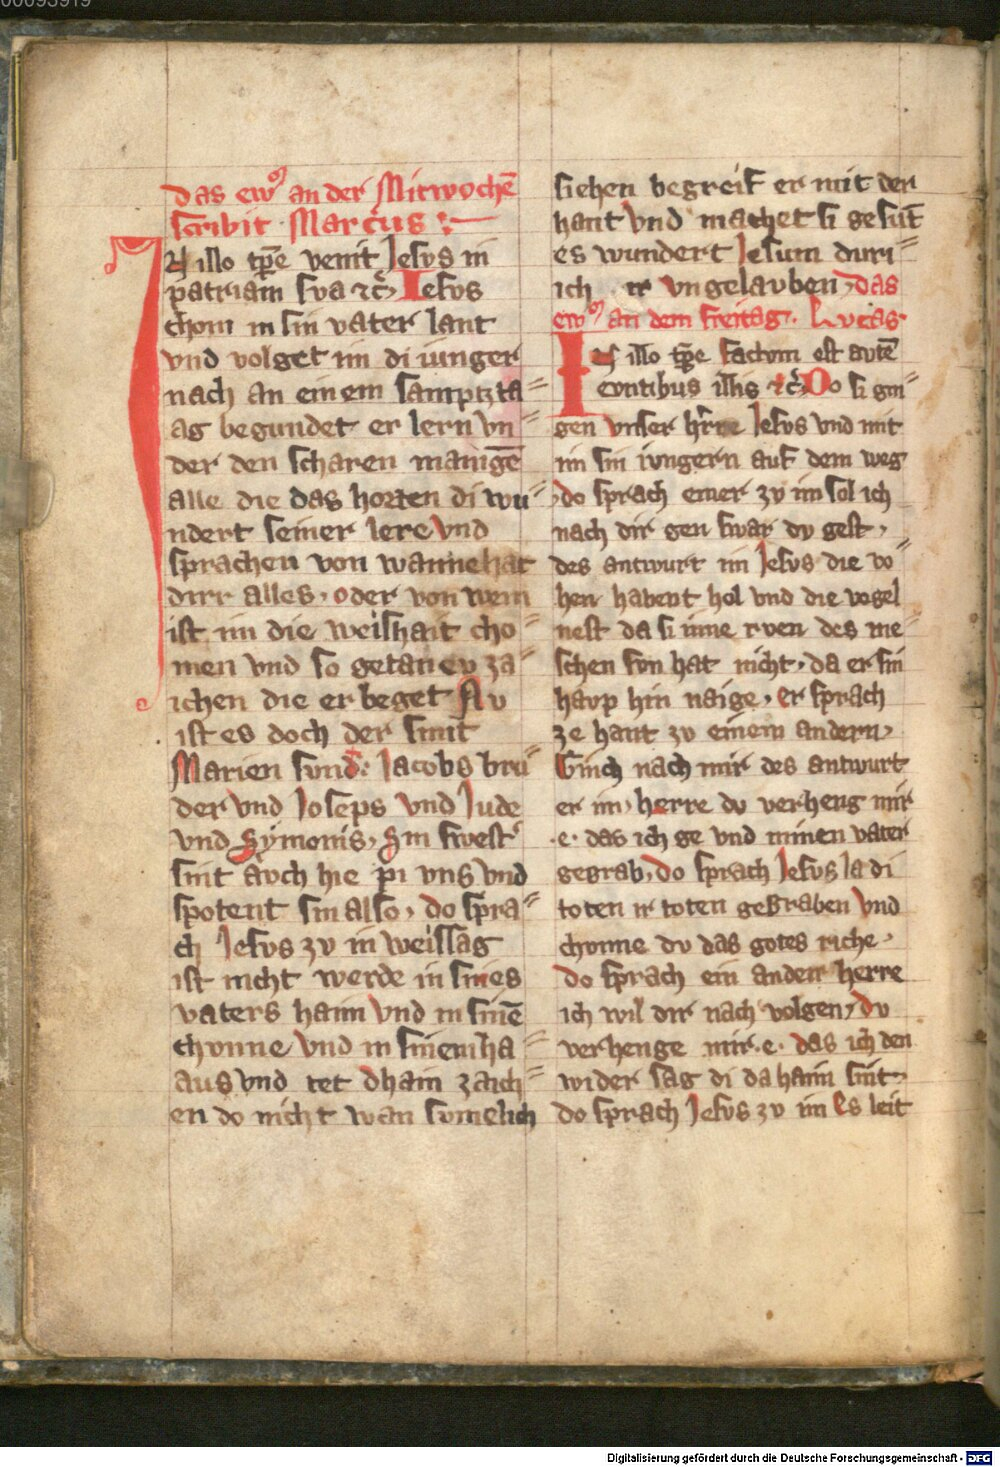 00093919
das ewꝰ an der Mitwochē
scribit · Marcus :~
IN illo tp̄e venit Jesvs in
patriam sva ⁊c̄, Iesvs
chom in sin vater lant
vnd volget im di iunger
nach an einem samptzta=
ag begundet er lern vn=
der den scharen manigē
alle die das horten di wu=
ndert seiner lere vnd
sprachen von wanne hat
dirr alles, oder von wem
ist im die weishait cho=
men vnd so getanev za=
ichen die er beget Nv
ist es doch der smit
Marien svnd: Jacobs bru=
der vnd Joseps vnd Jude
vnd Symonis, Sin swest'
sint avch hie pi vns vnd
spotent sin also, do spra=
ch Jesvs zv in weissag
ist nicht werde in sines
vaters haim vnd in sinē
chvnne vnd in sinem ha=
aus vnd tet dhain zaich=
en do nicht wan svmelich
siehen begreif er mit der
hant vnd machet si gesūt
es wundert Jesum duri=
ich ir vngelavben, das
ewꝰ an dem freitag. Lvcas
IN illo tp̄e factvm est avtē
evntibus illis ⁊c̄, Do si gin=
gen vnser h̄rre Jesvs vnd mit
im sin ivngern auf dem weg
do sprach einer zv im sol ich
nach dir gen swar dv gest,
des antwurt im Jesvs die vo=
hen habent hol vnd die vogel
nest da si inne rven des me=
schen svn hat nicht, da er sin
havp hin naige, er sprach
ze hant zv einem andern,
Ginch nach mir des antwurt
er im, herre dv verheng mir
.e. das ich ge vnd minen vater
gegrab, do sprach Jesvs la di
toten ir toten begraben vnd
chonne dv das gotes riche,
do sprach ein ander herre
ich wil dir nach volgen, dv
verhenge mir .e. das ich den
wider sag di da haim sint,
do sprach Jesvs zv im Es leit
Digitalisierung gefördert durch die Deutsche Forschungsgemeinschaft - DFG